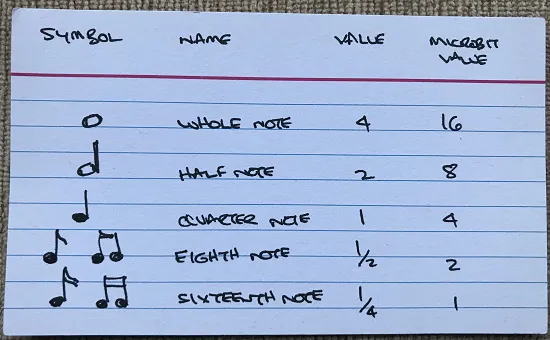 SYMBOL NAME VALUE MICROBIT VALUE
WHOLE NOTE 4 16
HALF NOTE 2 8
QUARTER NOTE 1 4
EIGHTH NOTE 1/2 2
SIXTEENTH NOTE 1/4 1